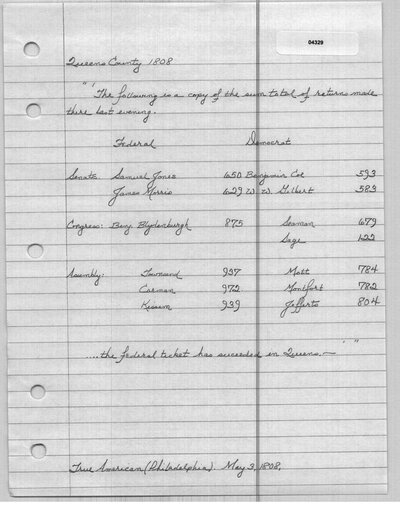 04329
Queens County 1808
" ' The following is a copy of the sum total of returns made
there last evening.
Federal Democrat
Senate: Samuel Jones 650 Benjamin Coe 593
James Morris 629 W. W. Gilbert 583
Congress: Benj. Blydenburgh 875 Seaman 679
Sage 122
Assembly: Townsend 937 Mott 784
Carman 972 Montfort 782
Kissam 939 Jefferts 804
....the federal ticket has succeeded in Queens.— ' "
True American (Philadelphia). May 3, 1808.